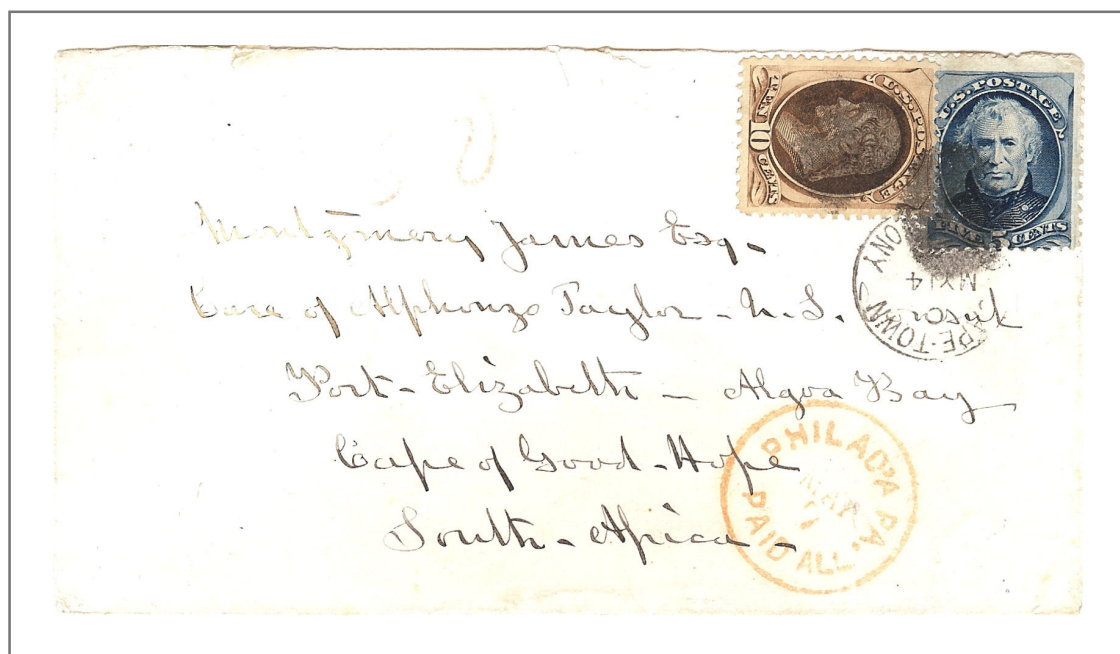 U.S. POSTAGE
10
CENTS
U.S. POSTAGE
FIVE 5 CENTS
MY 14
Montgomery James Esq.
Care of Alphonzo Taylor - U.S.
Port-Elizabeth - Algoa Bay
Cape of Good-Hope
South-Africa -
PHILAD'A PA.
MAR
PAID ALL.